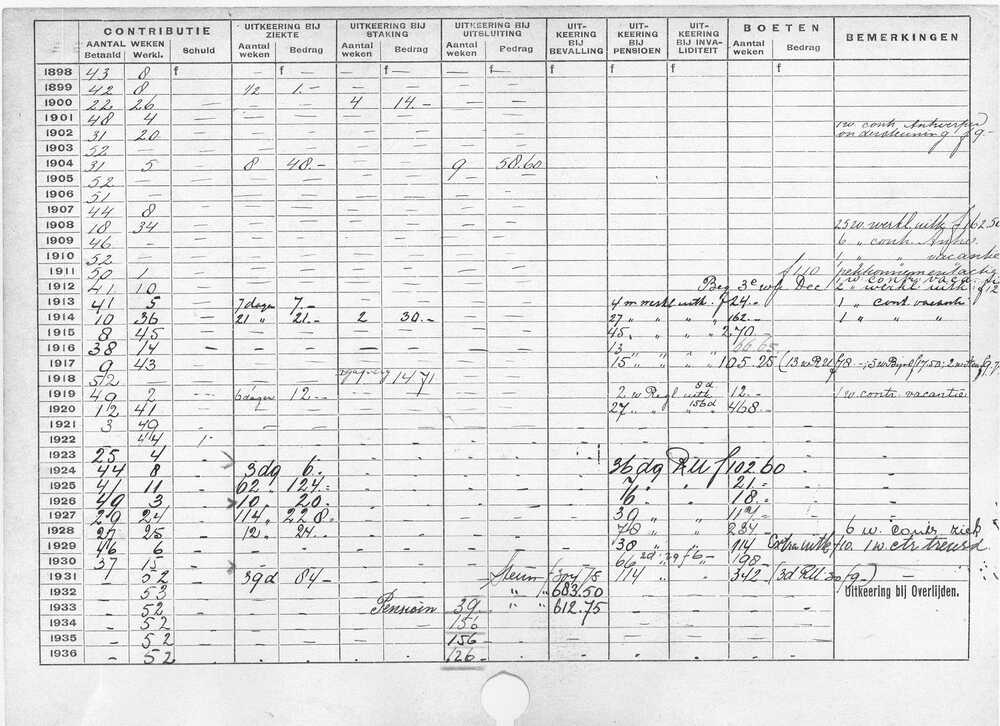 CONTRIBUTIE UITKEERING BIJ ZIEKTE UITKEERING BIJ STAKING UITKEERING BIJ UITSLUITING UIT-KEERING BIJ BEVALLING UIT-KEERING BIJ PENSIOEN UIT-KEERING BIJ INVA-LIDITEIT BOETEN BEMERKINGEN
AANTAL WEKEN Schuld Aantal weken Bedrag Aantal weken Bedrag Aantal weken Pedrag Aantal weken Bedrag
Betaald Werkl.
1898 43 8 f — — f — — f — — f f f f f
1899 42 8 1/2 1.— — — — —
1900 22 26 — — — 4 14.— — —
1901 48 4 — — — — — — —
1902 31 20 — — — — — — — 1 w. cont. Antwerpen
ondersteuning f 9-
1903 52 — — — — — — — —
1904 31 5 — 8 48.— — — 9 58.60
1905 52 — — — — — — — —
1906 51 — — — — — — — —
1907 44 8 — — — — — — —
1908 18 34 — — — — — — — 25 w. werkl. uitk f 162.50
1909 46 — — — — — — — — 6 „ cont.
1910 52 — — — — — — — — 1 „ „ vacantie
1911 50 1 — — — — — — — f 110
1912 41 10 — — — — — — — Beg 3e w/ Dec / 1 w contr. vaca.
„ werkl uitk.
1913 41 5 — 7 dagen 7.— — — — — 4 w werkl uitk. f 24.— 1 „ cont vacantie
1914 10 36 — 21 „ 21.— 2 30.— — — 27 „ „ „ 162.— 1 „ „ „
1915 8 45 — — — — — — — 45 „ „ „ 270.—
1916 38 14 — — — — — — — 13 „ „ „
1917 9 43 — — — — — — — 15 „ „ „ 105.25 (13 w R.U. f 78.—; 5 w f 17.50; 2 w
1918 52 — — — — 14 71 — —
1919 49 2 — 6 dagen 12.— — — — — 2 w Regl uitk 8 d 12.— 1 w contr. vacantie
1920 12 41 — — — — — — — 27 „ „ 156 d 468.—
1921 3 49 — — — — — — —
1922 44
1923 25 4
1924 44 8 - 3 dg 6.- - - - - 36 dg R.U f 102.60
1925 41 11 - 62 „ 124.= - - - - 7 „ „ 21.-
1926 49 3 - 10 „ 20.- - - - - 6 „ „ 18.-
1927 29 24 - 114 „ 228.- - - - - 39 „ „
1928 27 25 - 12 „ 24.- - - - - 78 „ „ 234 - 6 w. contr. ziek
1929 46 6 - - - - - - - 38 „ „ 114 Extra uitk f 10. 1 w ctr
1930 37 15 - - - - - - - 66 2d „ 29 f 6- „ 198 -
1931 1 52 - 39 d 84 - - - Steun f 304.75 114 „ „ 342 (3 d R.U. 30 f 9-)
1932 - 53 - - - - - „ „ 683.50 Uitkeering bij Overlijden.
1933 - 52 - - - Pensioen 39 „ „ 612.75
1934 - 52 - - - - - 156
1935 - 52 - - - - - 156 -
1936 - 52 - - - - - 126 -